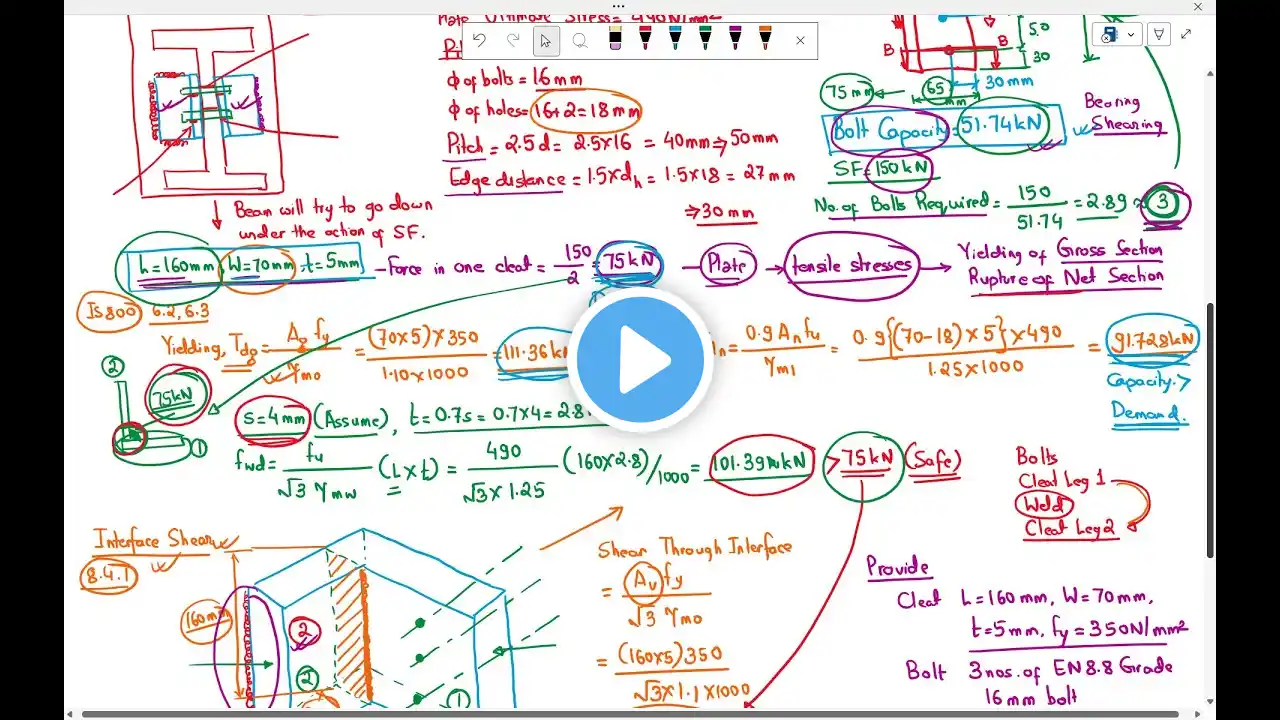 Plate Ultimate Stress = 490N/mm²
ϕ of bolts = 16mm
ϕ of holes = 16+2 = 18mm
Pitch = 2.5d = 2.5×16 = 40mm ⇒ 50mm
Edge distance = 1.5×dh = 1.5×18 = 27mm
⇒ 30 mm
B B
5.0
30
30mm
75 mm ← 65 mm
Bolt Capacity = 51.74kN
Bearing
Shearing
SF = 150kN
No. of Bolts Required = 150/51.74 = 2.89 ≈ 3
Beam will try to go down
under the action of SF.
h=160mm, W=70mm t=5mm – Force in one cleat = 150/2 = 75kN – Plate → tensile stresses → Yielding of Gross Section
Rupture of Net Section
IS800 6.2, 6.3
Yielding, Tdg = Ag fy/γmo = (70×5)×350/1.10×1000 = 111.36kN
= 0.9 An fu/γm1 = 0.9{(70-18)×5}×490/1.25×1000 = 91.728kN
Capacity >
Demand
② 75kN ①
S=4mm (Assume), t=0.7s = 0.7×4 = 2.8
fwd = fu/√3 γmw (L×t) = 490/√3×1.25 (160×2.8)/1000 = 101.39 kN > 75kN (Safe)
Bolts
Cleat Leg 1
Weld
Cleat Leg 2
Interface Shear
8.4.1
160mm
②
②
①
Shear Through Interface
= Av fy/√3 γmo
= (160×5)350/√3×1.1×1000
Provide
Cleat h=160mm, W=70mm,
t=5mm, fy=350N/mm²
Bolt 3nos. of EN8.8 Grade
16mm bolt